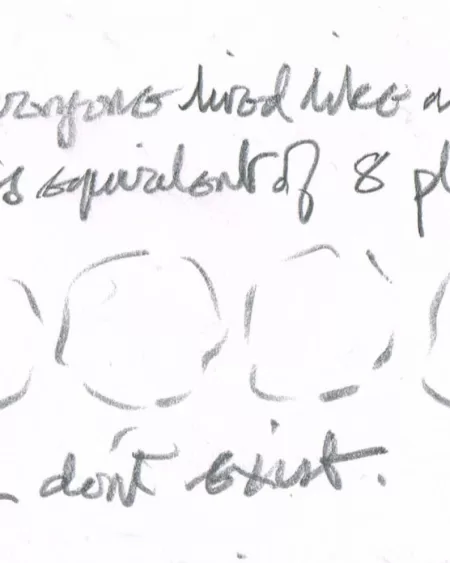 eryone lived like a
is equivalent of 8 pl
don't exist.